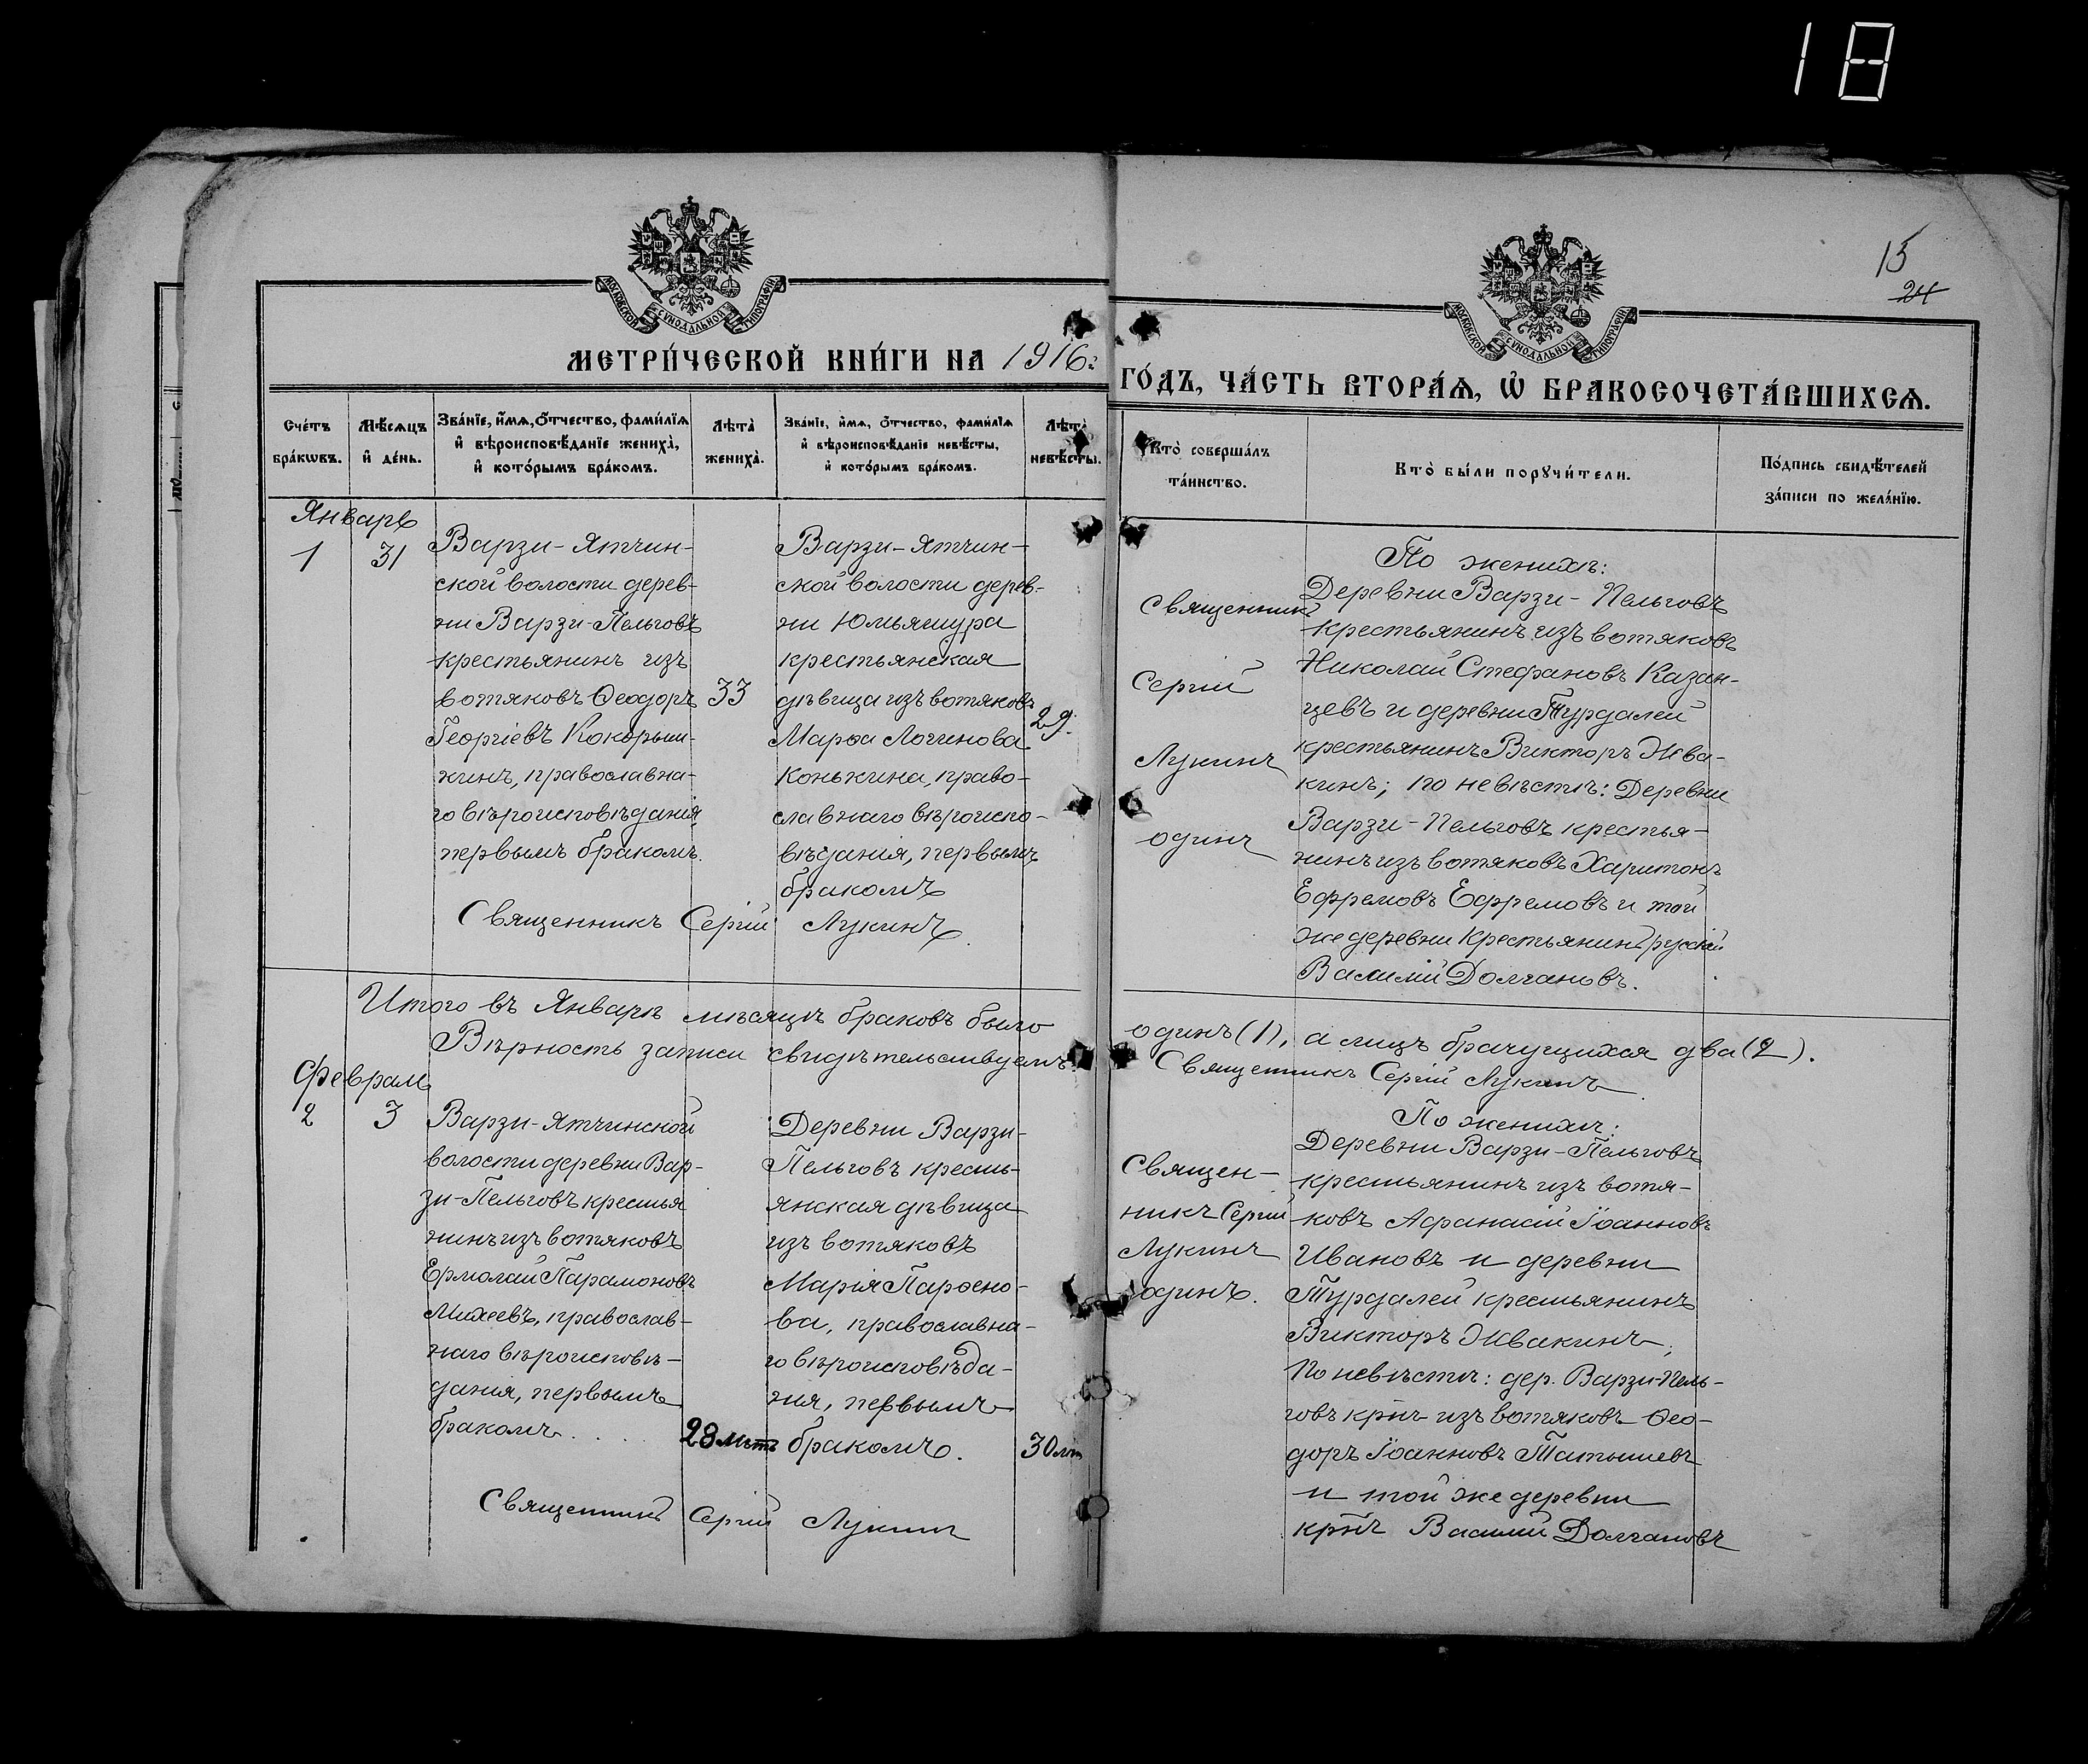 18
15
24
МОСКОВСКОЙ СУНОДАЛЬНОЙ ТИПОГРАФІИ
МОСКОВСКОЙ СУНОДАЛЬНОЙ ТИПОГРАФІИ
МЕТРИ́ЧЕСКОЙ КНИ́ГИ НА 1916:
ГО́ДЪ, ЧА́СТЬ ВТОРА́Ѧ, Ѽ БРАКОСОЧЕТА́ВШИХСѦ.
Сче́тъ бра́кѡвъ.
Мѣ́сѧцъ и҆ де́нь.
Зва́нїе, и҆́мѧ, ѻ҆́тчество, фами́лїѧ
и҆ вѣроисповѣ́данїе жениха̀,
и҆ кото́рымъ бра́комъ.
Лѣта̀ жениха̀.
Зва́нїе, и҆́мѧ, ѻ҆́тчество, фами́лїѧ
и҆ вѣроисповѣ́данїе невѣ́сты,
и҆ кото́рымъ бра́комъ.
Лѣта̀ невѣ́сты.
Кто̀ соверша́лъ
та́инство.
Кто̀ бы́ли порꙋчи́тели.
По́дпись свидѣ́телей
за́писи по жела́нїю.
Январь
1
31
Варзи-Ятчин-
ской волости дерев-
ни Варзи-Пельговъ
крестьянинъ изъ
вотяковъ Ѳеодоръ
Георгіевъ Кокорыш-
кинъ, православна-
го вѣроисповѣданія,
первымъ бракомъ.
33
Варзи-Ятчин-
ской волости дерев-
ни Юмьяшура
крестьянская
дѣвица изъ вотяковъ
Марѳа Логинова
Конькина, право-
славнаго вѣроиспо-
вѣданія, первымъ
бракомъ
29.
Священникъ Сергій Лукинъ.
Священникъ
Сергій
Лукинъ
одинъ
По женихѣ:
Деревни Варзи-Пельговъ
крестьянинъ изъ вотяковъ
Николай Стефановъ Казан-
цевъ и деревни Турдалей
крестьянинъ Викторъ Жва-
кинъ; по невѣстѣ: Деревни
Варзи-Пельговъ крестья-
нинъ изъ вотяковъ Харитонъ
Ефремовъ Ефремовъ и той
же деревни крестьянинъ русскій
Василій Долгановъ.
Итого въ Январѣ мѣсяцѣ браковъ было
одинъ (1), а лицъ брачущихся два (2).
Вѣрность записи свидѣтельствуемъ:
Священникъ Сергій Лукинъ
Февраль
2
3
Варзи-Ятчинской
волости деревни Вар-
зи-Пельговъ крестья
нинъ изъ вотяковъ
Ермолай Парамоновъ
Михеевъ, православ-
наго вѣроисповѣ-
данія, первымъ
бракомъ. . . .
28 лѣтъ
Деревни Варзи-
Пельговъ кресть-
янская дѣвица
изъ вотяковъ
Марія Парѳено-
ва, православна-
го вѣроисповѣда-
нія, первымъ
бракомъ.
30 лѣт
Священникъ Сергій Лукинъ
Священ-
никъ Сергій
Лукинъ
одинъ.
По женихѣ:
Деревни Варзи-Пельговъ
крестьянинъ изъ вотя-
ковъ Афанасій Іоанновъ
Ивановъ и деревни
Турдалей крестьянинъ
Викторъ Жвакинъ;
По невѣстѣ: дер. Варзи-Пель-
говъ крнъ изъ вотяковъ Ѳео-
доръ Іоанновъ Татышевъ
и той же деревни
крнъ Василій Долгановъ